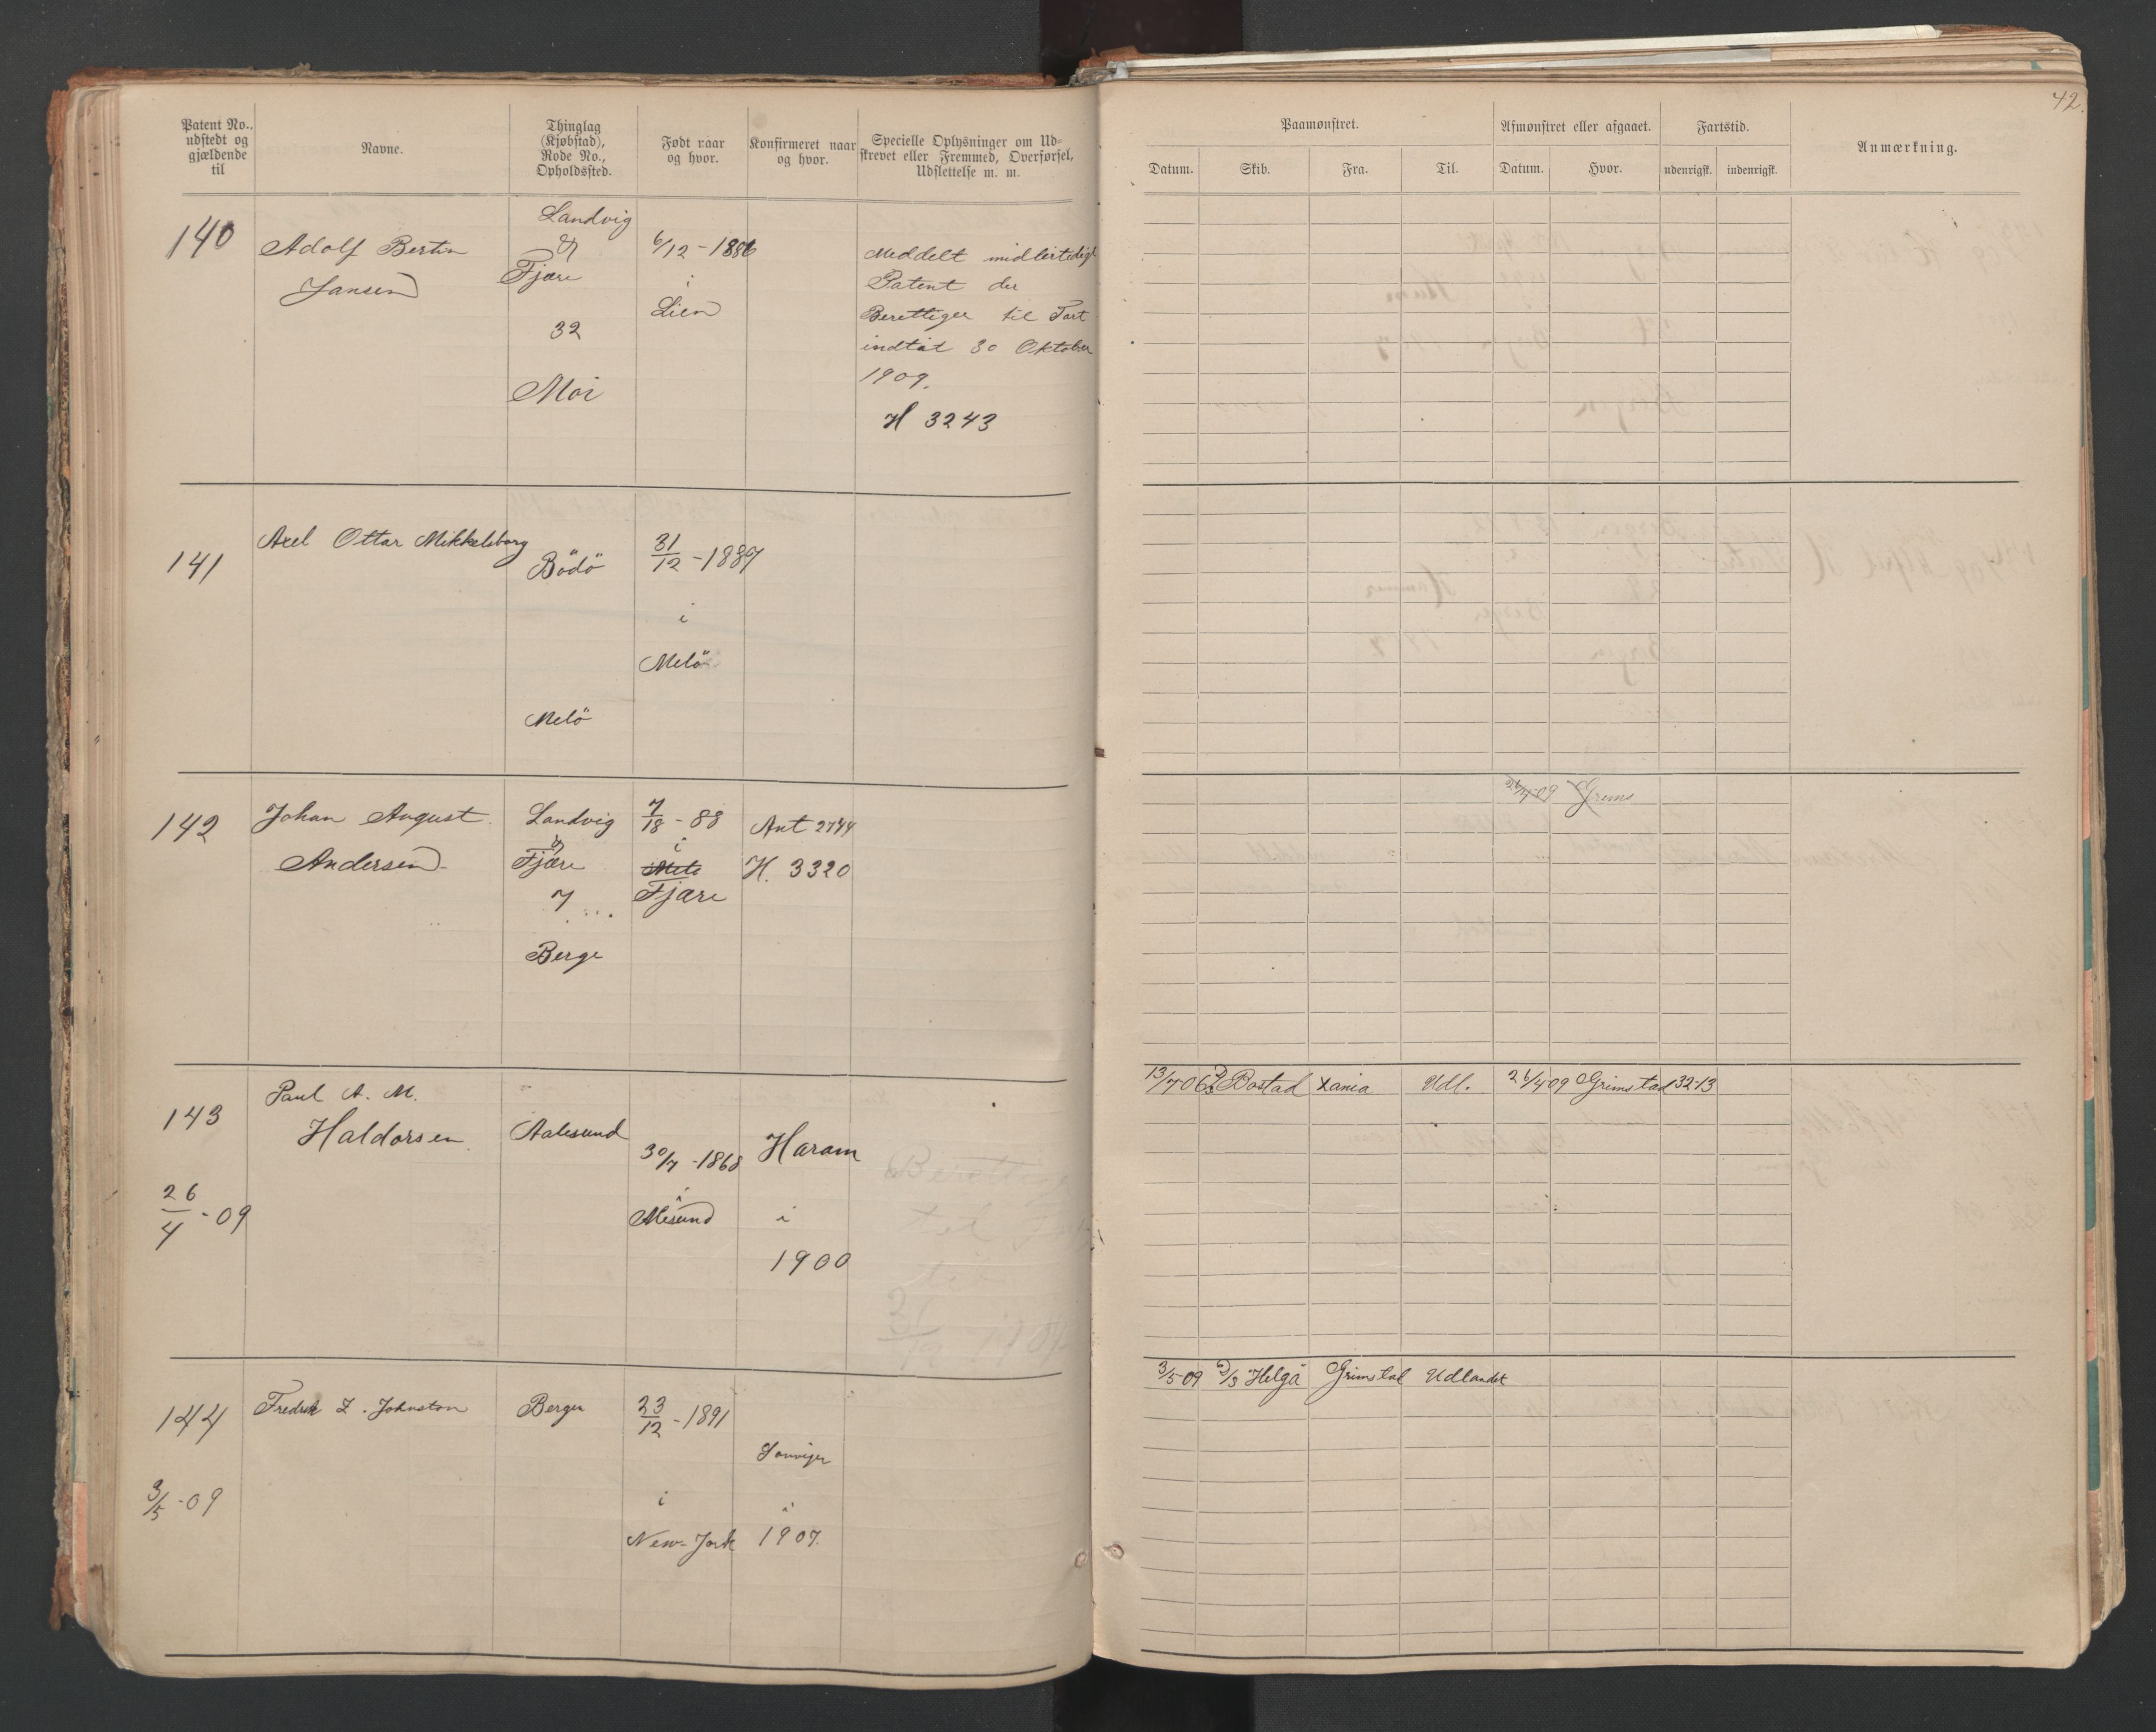 42.
Patent No., udstedt og gjældende til
Navne.
Thinglag (Kjøbstad), Rode No., Opholdssted.
Født naar og hvor.
Konfirmeret naar og hvor.
Specielle Oplysninger om Udskrevet eller Fremmed, Overførsel, Udslettelse m. m.
Paamønstret.
Afmønstret eller afgaaet.
Fartstid.
Anmærkning.
Datum.
Skib.
Fra.
Til.
Datum.
Hvor.
udenrigsk.
indenrigsk.
140
Adolf Bertin
Jansen
Landvig
&
Fjære
32
Moi
6/12-1886
i
Lien
Meddelt midlertidigt
Patent der
Berettiger til Fart
indtil 30 Oktober
1909.
H 3243
141
Axel Ottar Mikkelborg
Bödö
Melö
31/12-1889
i
Melö
142
Johan August
Andersen
Landvig
&
Fjære
7
Berge
7/18-88
i
Melö
Fjære
Ant 2744
H. 3320
26/4-09 Grims
143
26/4-09
Paul A. M.
Haldorsen
Aalesund
30/7-1868
i
Alesund
Haram
i
1900
Berettige
til
13/7 06 Bostad Xania Udl. 26/4 09 Grimstad 32-13
144
3/5-09
Fredrik Z. Johnston
Bergen
23/12-1891
i
New-York
Sanviger
i
1907.
3/5-09 Helga Grimstad Udlandet